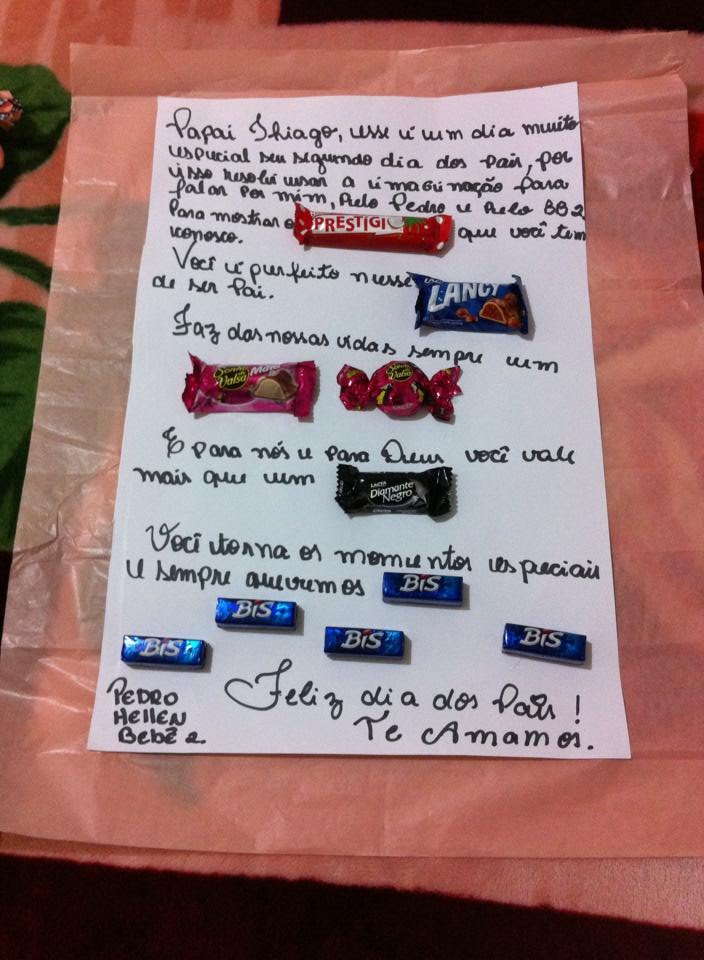 Papai Thiago, esse é um dia muito
especial seu segundo dia dos pais, por
isso resolvi usar a imaginação para
falar por mim, pelo Pedro e pelo BB2
Para mostrar o PRESTIGIO que você tem
conosco.
Você é perfeito nesse LANCY
de ser Pai.
Faz das nossas vidas sempre um
Sonho de Valsa Mais Sonho de Valsa
E para nós e para Deus você vale
mais que um LACTA Diamante Negro
Você torna os momentos especiais
e sempre queremos BIS
BIS BIS BIS BIS
PEDRO
HELLEN
BEBÊ 2.
Feliz dia dos Pais!
Te Amamos.